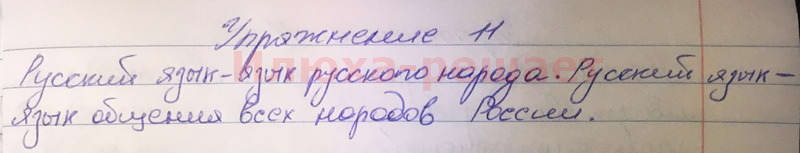 Упражнение 11
Илюха-решает
Русский язык-язык русского народа. Русский язык-
язык общения всех народов России.